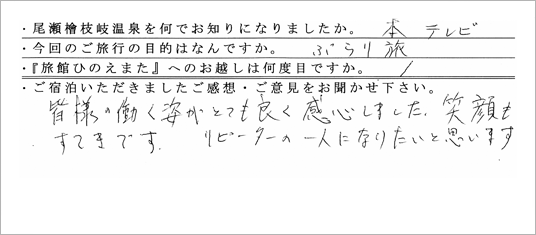 ・尾瀬檜枝岐温泉を何でお知りになりましたか。 本 テレビ
・今回のご旅行の目的はなんですか。 ぶらり旅
・『旅館ひのえまた』へのお越しは何度目ですか。 1
・ご宿泊いただきましたご感想・ご意見をお聞かせ下さい。
皆様の働く姿がとても良く感心しました。笑顔も
すてきです。 リピーターの一人になりたいと思います